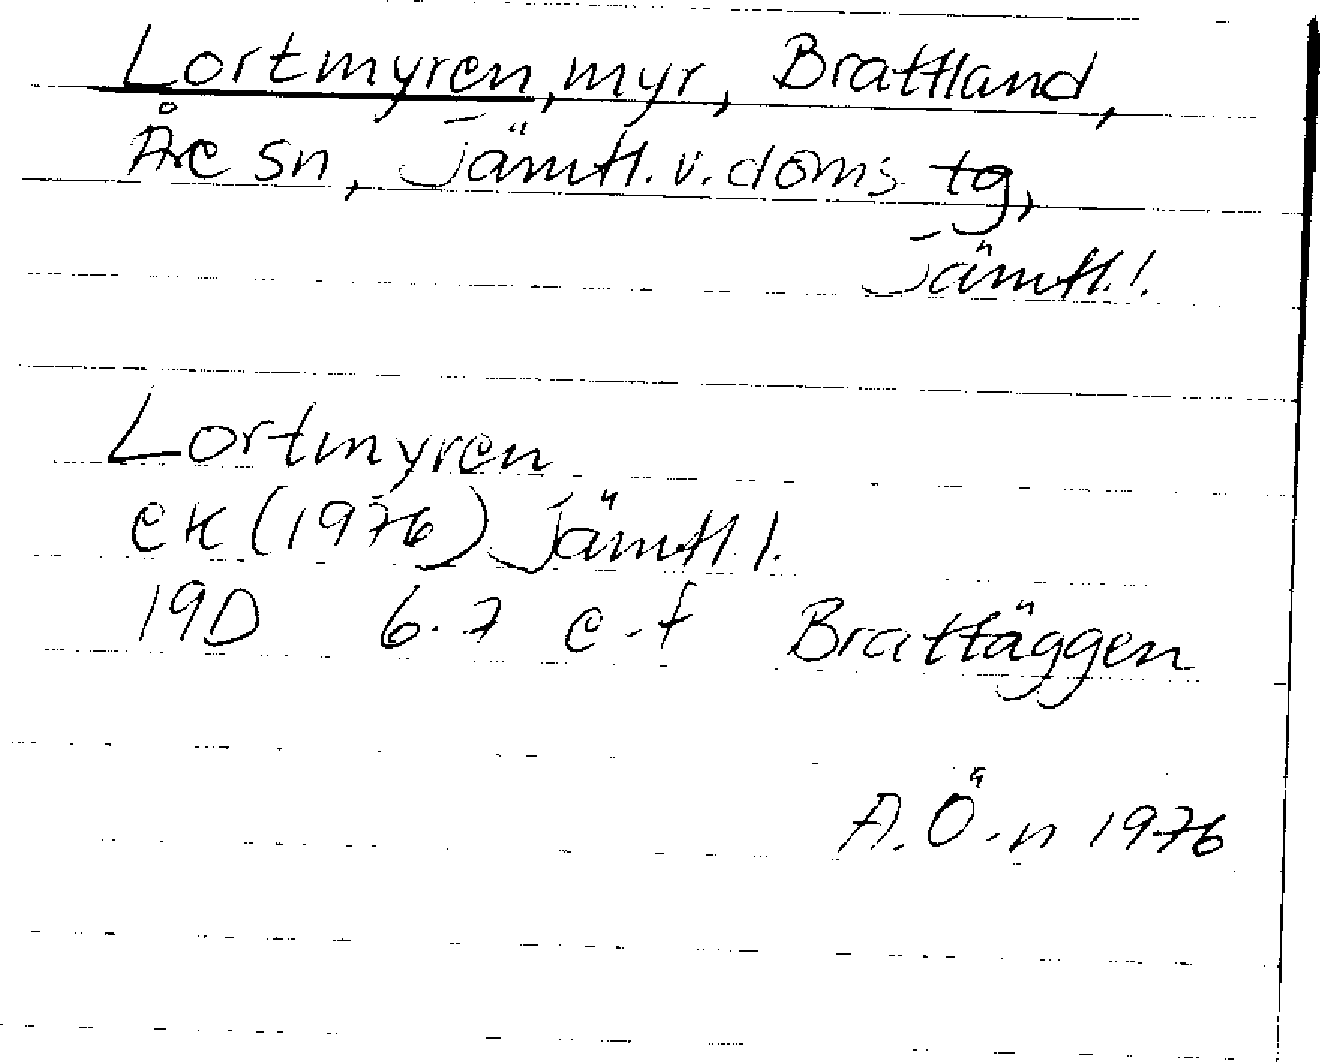 Lortmyren, myr, Brattland,
Åre sn, Jämtl. v. doms tg,
Jämtl. l.
Lortmyren
ek (1976) Jämtl. l.
19D 6-7 e-f Brattäggen
A. Ö-n 1976